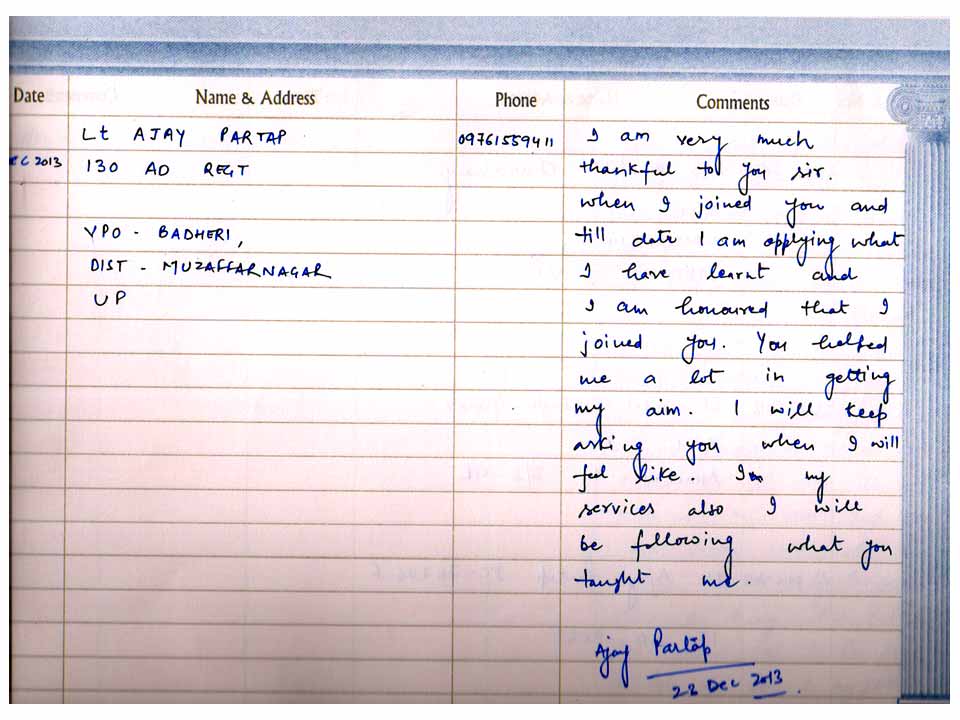 Date Name & Address Phone Comments
Lt AJAY PARTAP 09761559411 I am very much
EC 2013 130 AD REGT thankful to you sir.
when I joined you and
VPO - BADHERI, till date I am applying what
DIST - MUZAFFARNAGAR I have learnt and
UP I am honoured that I
joined you. You helped
me a lot in getting
my aim. I will keep
asking you when I will
feel like. In my
services also I will
be following what you
taught me.
Ajay Partap
Dec 2013